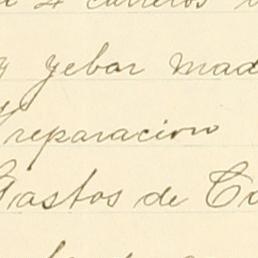 4 carreros
y yebar mad
Preparacion
Gastos de Ca